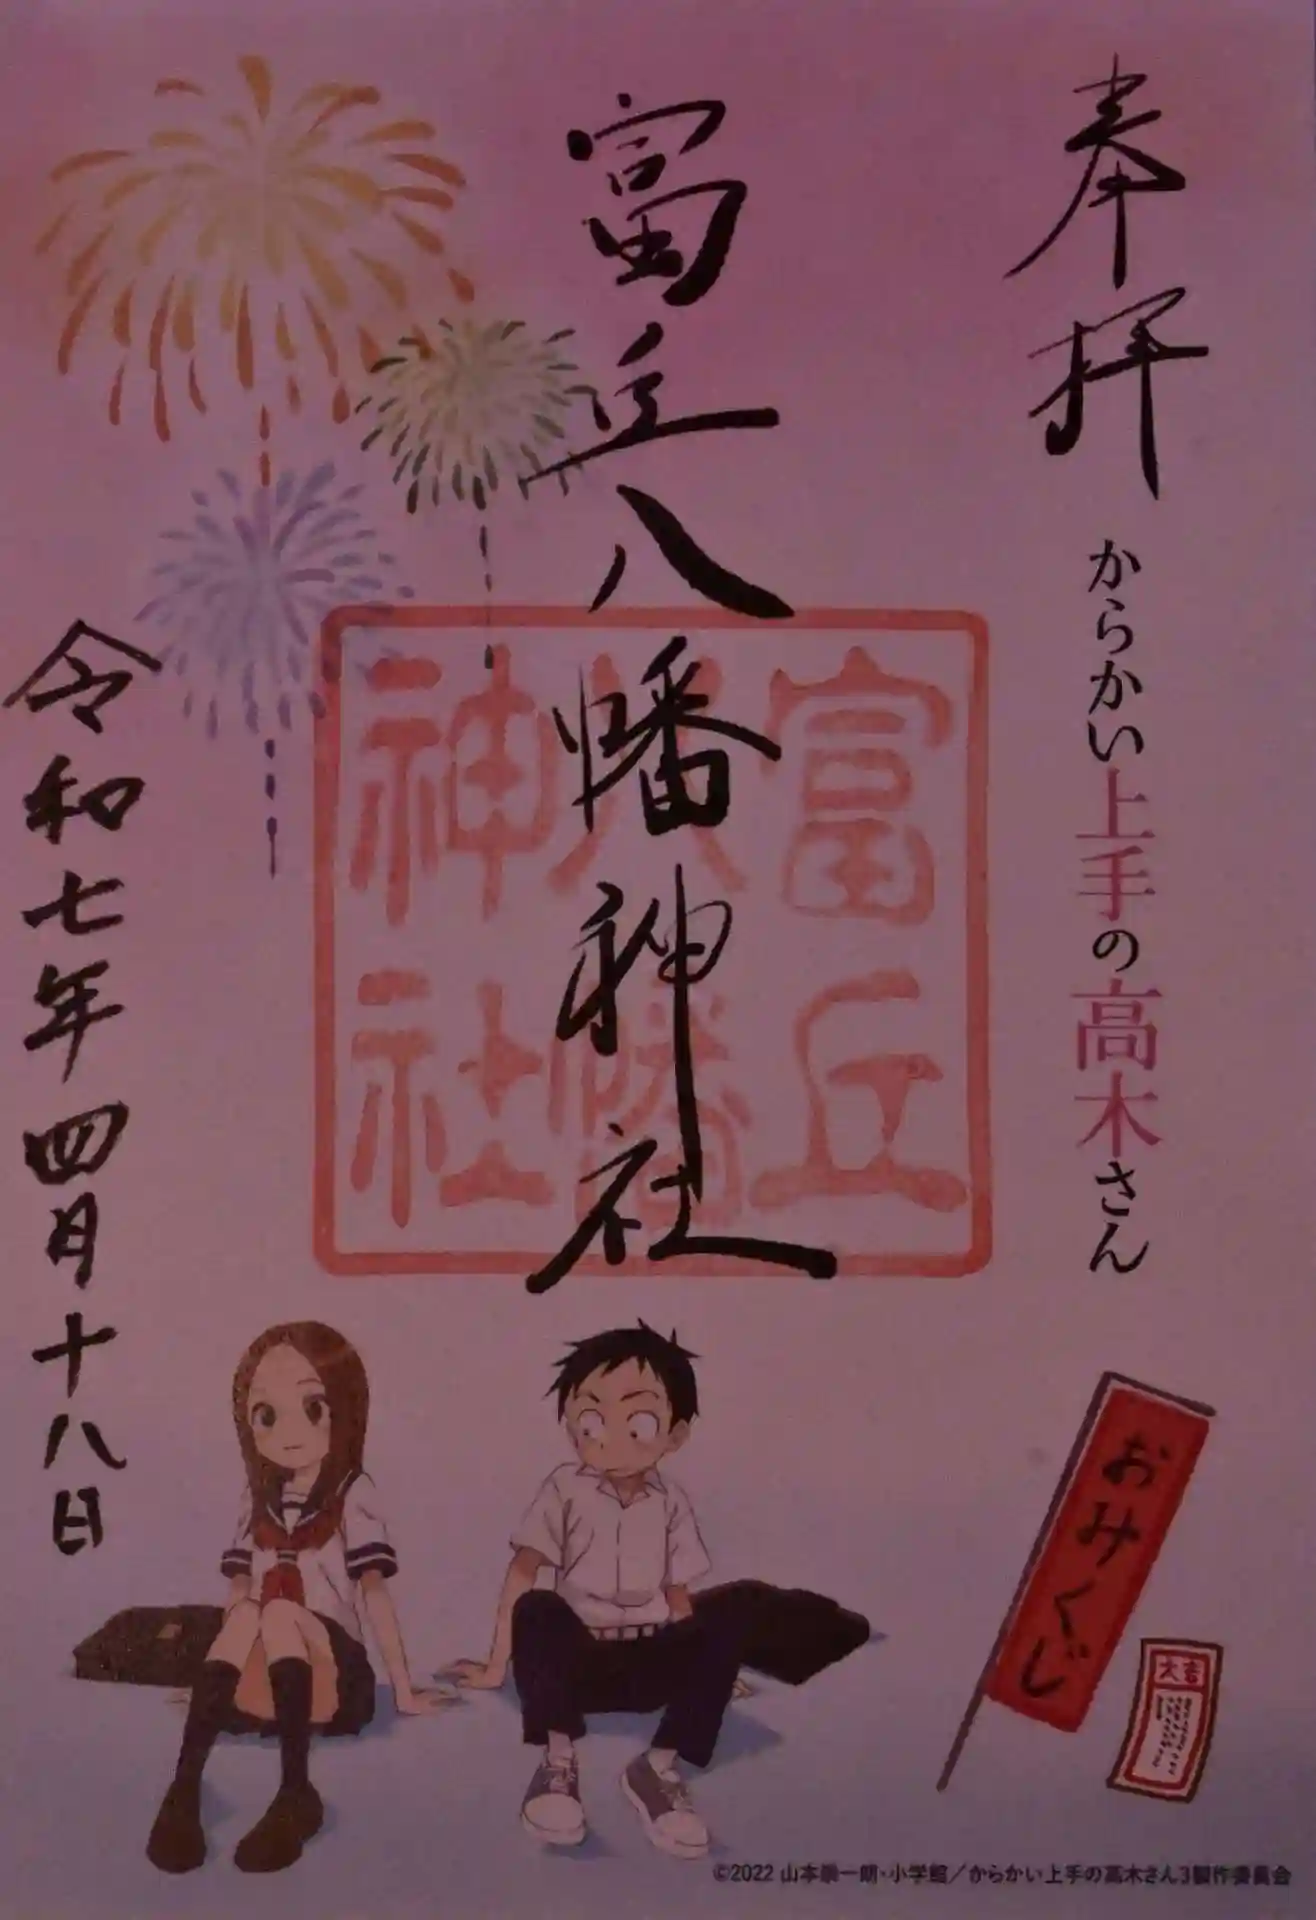 奉拝
からかい上手の高木さん
富丘八幡神社
富丘
八幡
神社
令和七年四月十八日
おみくじ
大吉
©2022 山本崇一朗・小学館／からかい上手の高木さん3製作委員会